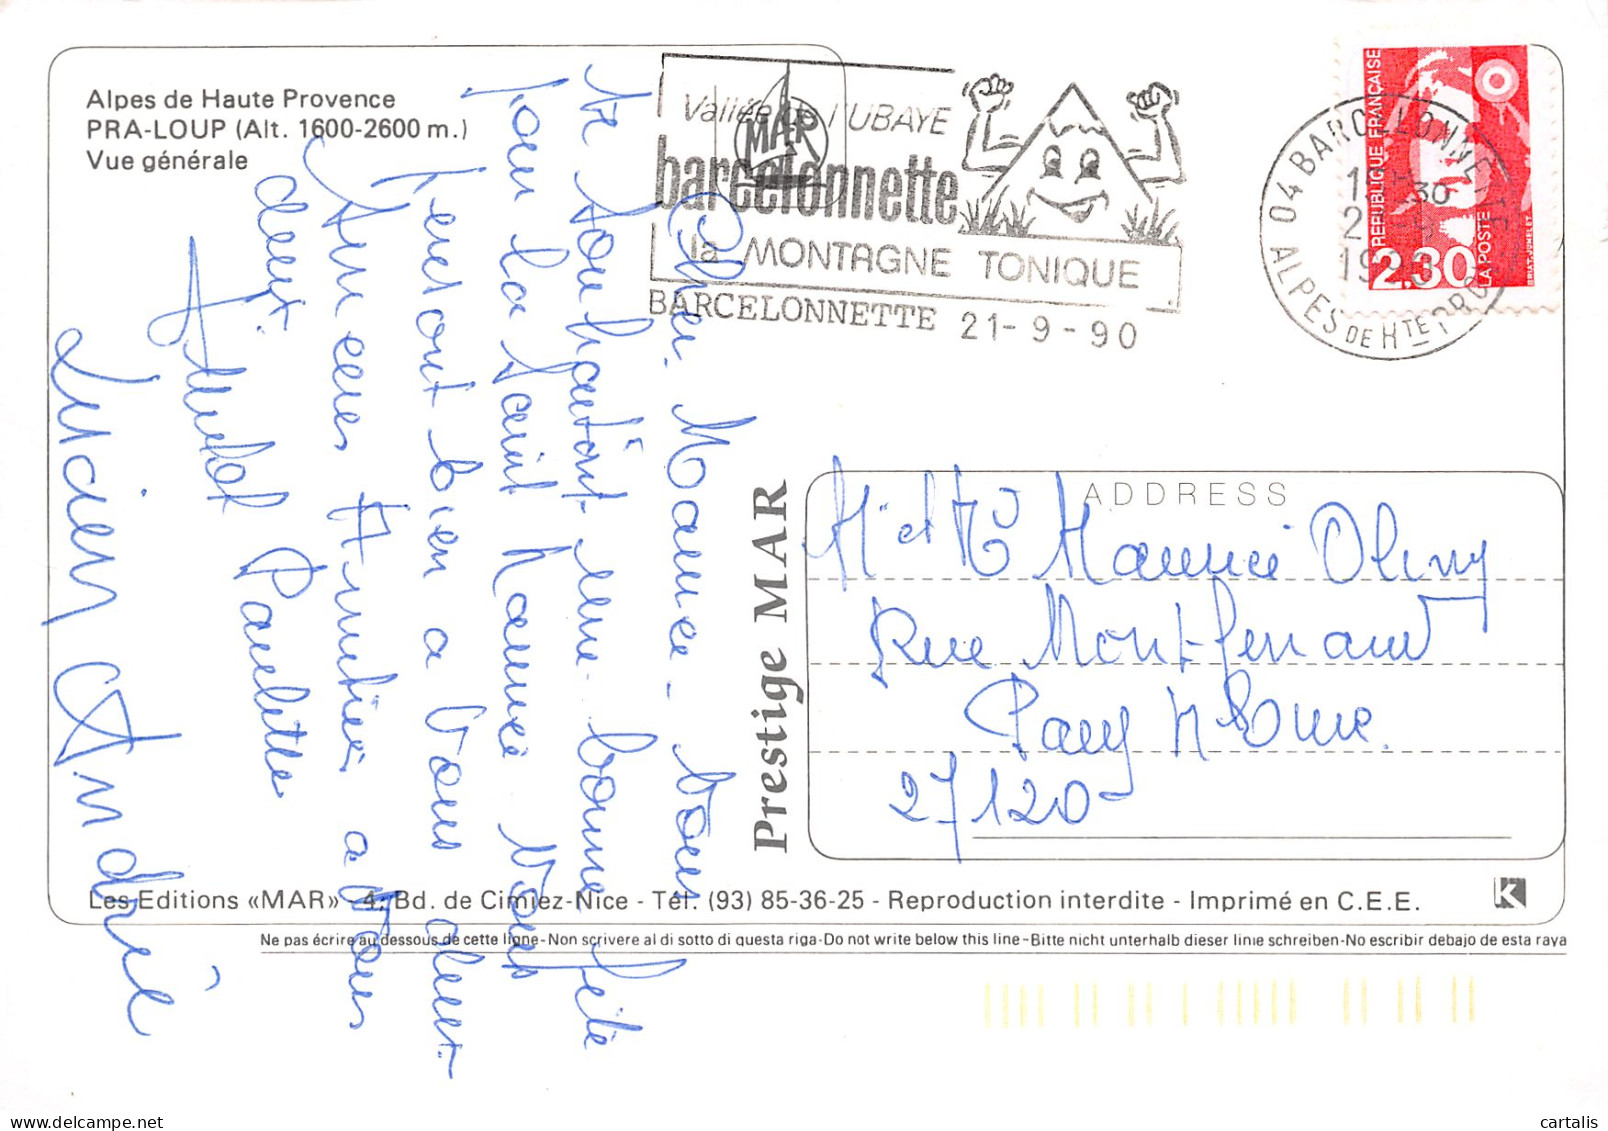 Alpes de Haute Provence
PRA-LOUP (Alt. 1600-2600 m.)
Vue générale
MAR
Vallée de l'UBAYE
barcelonnette
la MONTAGNE TONIQUE
BARCELONNETTE 21-9-90
04 BARCELONNETTE
ALPES DE HTE PRO
REPUBLIQUE FRANÇAISE
2,30
LA POSTE
Cher Maurice. Vous
et souhaitant une bonne fête
pour la Saint Maurice Vous
bien a Vous
Amitiés a Vous
deux
Paulette
Lucien André
Prestige MAR
ADDRESS
Mr et Me Maurice
Rue Montferrand
Pacy
27120
Les Editions «MAR» - 4, Bd. de Cimiez-Nice - Tél. (93) 85-36-25 - Reproduction interdite - Imprimé en C.E.E.
K
Ne pas écrire au dessous de cette ligne-Non scrivere al di sotto di questa riga-Do not write below this line-Bitte nicht unterhalb dieser linie schreiben-No escribir debajo de esta raya
cartalis